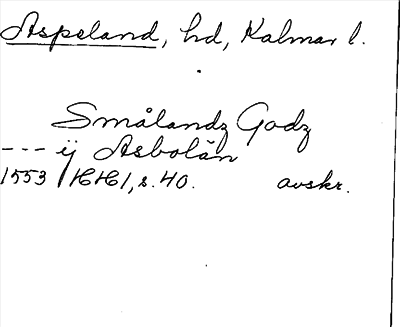 Aspeland, hd, Kalmar l.
Smålandz Godz
--- ij Asbolän
1553 HH1, s. 40. avskr.